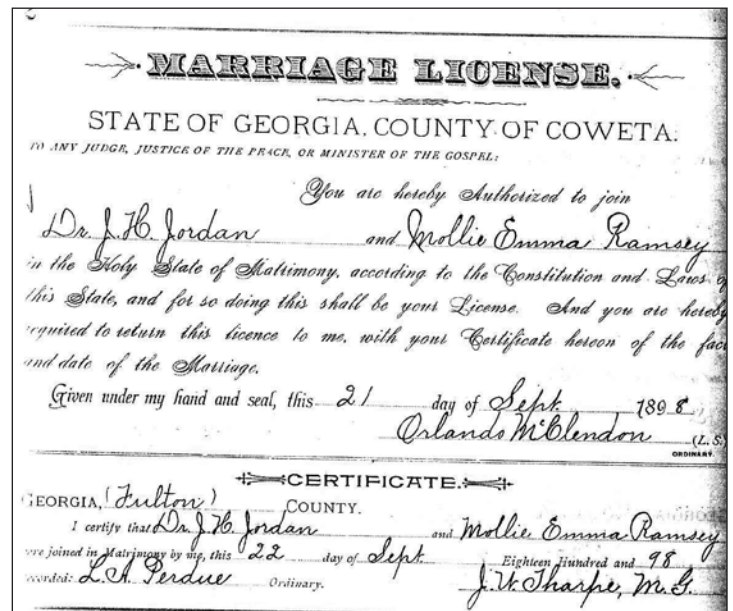 MARRIAGE LICENSE.
STATE OF GEORGIA, COUNTY OF COWETA.
TO ANY JUDGE, JUSTICE OF THE PEACE, OR MINISTER OF THE GOSPEL:
You are hereby Authorized to join
Dr. J. H. Jordan and Mollie Emma Ramsey
in the Holy State of Matrimony, according to the Constitution and Laws of
this State, and for so doing this shall be your License. And you are hereby
required to return this licence to me, with your Certificate hereon of the fact
and date of the Marriage.
Given under my hand and seal, this 21 day of Sept. 1898
Orlando McClendon (L. S.)
ORDINARY.
CERTIFICATE.
GEORGIA, (Fulton) COUNTY.
I certify that Dr. J. H. Jordan and Mollie Emma Ramsey
were joined in Matrimony by me, this 22 day of Sept Eighteen Hundred and 98
Recorded: L. A. Perdue Ordinary. J. W. Tharpe, M. G.